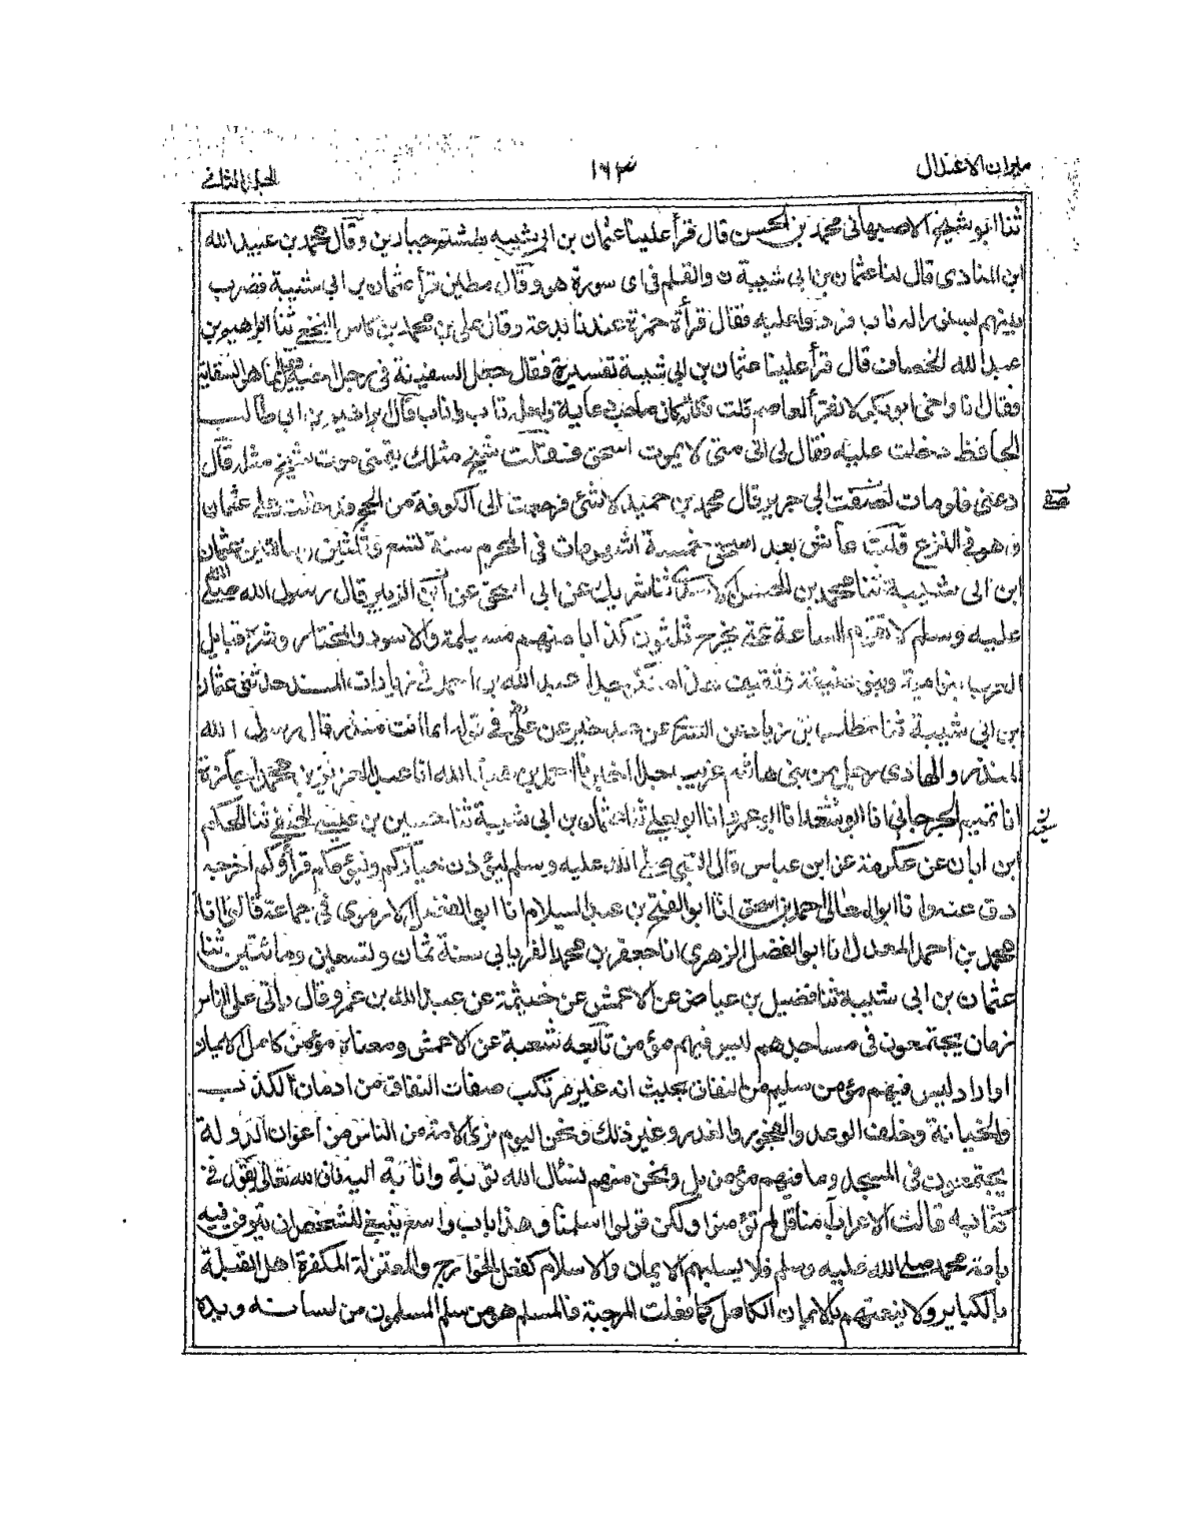 ميزان الاعتدال ١٦٣ الجلد الثانى
ثنا ابو شيخ الاصبهانى محمد بن الحسن قال قرأ علينا عثمان بن ابى شيبه بطشتم جبارين وقال محمد بن عبيد الله
ابن المنادى قال لنا عثمان بن ابى شيبة ن والقلم فى اى سورة هو وقال مطين قرأ عثمان بن ابى شيبة فضرب
بينهم بسنور له ناب فردوا عليه فقال قرأة حمزة عندنا بدعة وقال على بن محمد بن كاس النخعى ثنا ابراهيم بن
عبد الله الخصاف قال قرأ علينا عثمان بن ابى شيبة تفسيره فقال جعل السفينة فى رجل اخيه انما هو السقاية
فقال انا واخى ابو بكر لا نقرأ لعاصم قلت ولعله تاب واناب قال ابراهيم بن ابى طالب
الحافظ دخلت عليه فقال لى الى متى لا يموت اسحق فقلت شيخ مثلك يتمنى موت شيخ مثله قال
دعنى فلو مات لصفت لى جرير قال محمد بن حميد لا شئ فرجعت الى الكوفة من الحج فدخلت على عثمان
وهو فى النزع قلت عاش بعد اسحق خمسة اشهر ومات فى المحرم سنة تسع وثلثين عثمان
ابن ابى شيبة ثنا محمد بن الحسن الاسدى ثنا شريك عن ابى اسحق عن ابن الزبير قال رسول الله صلى الله
عليه وسلم لا تقوم الساعة حتى يخرج ثلثون كذابا منهم مسيلمة والاسود والمختار وشر قبايل
العرب بنو امية وبنى حنيفة وثقيف عبد الله بن احمد فى زيادات المسند حدثنى عثمان
ابن ابى شيبة ثنا مطلب بن زياد عن السدى عن عبد خير عن على فى قوله انما انت منذر قال رسول الله
المنذر والهادى رجل من بنى هاشم غريب جدا اخبرنا احمد بن هبة الله انا عبد العزيز بن محمد اجازة
انا تميم الجرجانى انا ابو سعد انا ابو عمرو انا ابو يعلى ثنا عثمان بن ابى شيبة ثنا حسين بن عيسى الحنفى ثنا الحكم
ابن ابان عن عكرمة عن ابن عباس قال النبى صلى الله عليه وسلم ليؤذن خياركم وليؤمكم قرأوكم اخرجه
دق عنه وانا ابو المعالى احمد بن اسحق انا ابو الفتح بن عبد السلام انا ابو الفضل الارموى فى جماعة قالوا انا
محمد بن احمد المعدل انا ابو الفضل الزهرى انا جعفر بن محمد الفريابى سنة ثمان وتسعين ومائتين ثنا
عثمان بن ابى شيبة ثنا فضيل بن عياض عن الاعمش عن خيثمة عن عبد الله بن عمرو قال يأتى على الناس
زمان يجتمعون فى مساجدهم ليس فيهم مؤمن تابعه شعبة عن الاعمش ومعناه مؤمن كامل الايمان
او اراد ليس فيهم مؤمن سليم من النفاق بحيث انه غير مرتكب صفات النفاق من ادمان الكذب
والخيانة وخلف الوعد والفجور والغدر وغير ذلك ونحن اليوم نرى الامة من الناس من أعوان الدولة
يجتمعون فى المسجد وما فيهم مؤمن بل ونحن منهم نسأل الله توبة وانابة اليه فان الله تعالى يقول فى
كتابه قالت الاعراب آمنا قل لم تؤمنوا ولكن قولوا اسلمنا وهذا باب واسع ينبغى للشخص ان يترفق فيه
بامة محمد صلى الله عليه وسلم فلا يسلبهم الايمان والاسلام كفعل الخوارج والمعتزلة المكفرة اهل القبلة
بالكباير ولا ينعتهم بالايمان الكامل كما فعلت المرجئة فالمسلم هو من سلم المسلمون من لسانه ويده